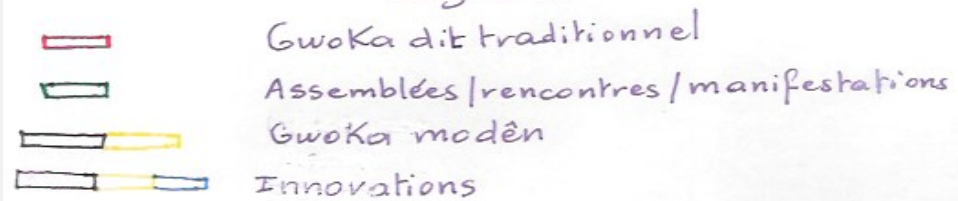 GwoKa dit traditionnel
Assemblées/rencontres/manifestations
GwoKa modên
Innovations